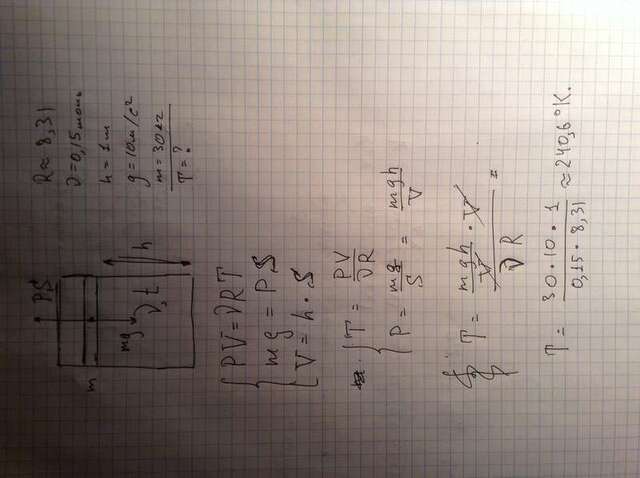 PS
m
mg
ν, t
h
R≈8,31
ν=0,15 моль
h=1 м
g=10 м/с²
m=30 кг
T=?
PV=νRT
mg=PS
V=h·S
T=PV/νR
P=mg/S=mgh/V
T=(mgh/V·V)/νR=
T=30·10·1/0,15·8,31≈240,6°K.